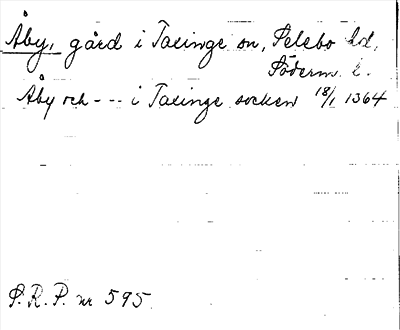 Åby, gård i Taxinge sn, Selebo hd,
Söderm. l.
Åby och --- i Taxinge socken 18/1 1364
S. R. P. nr 595.